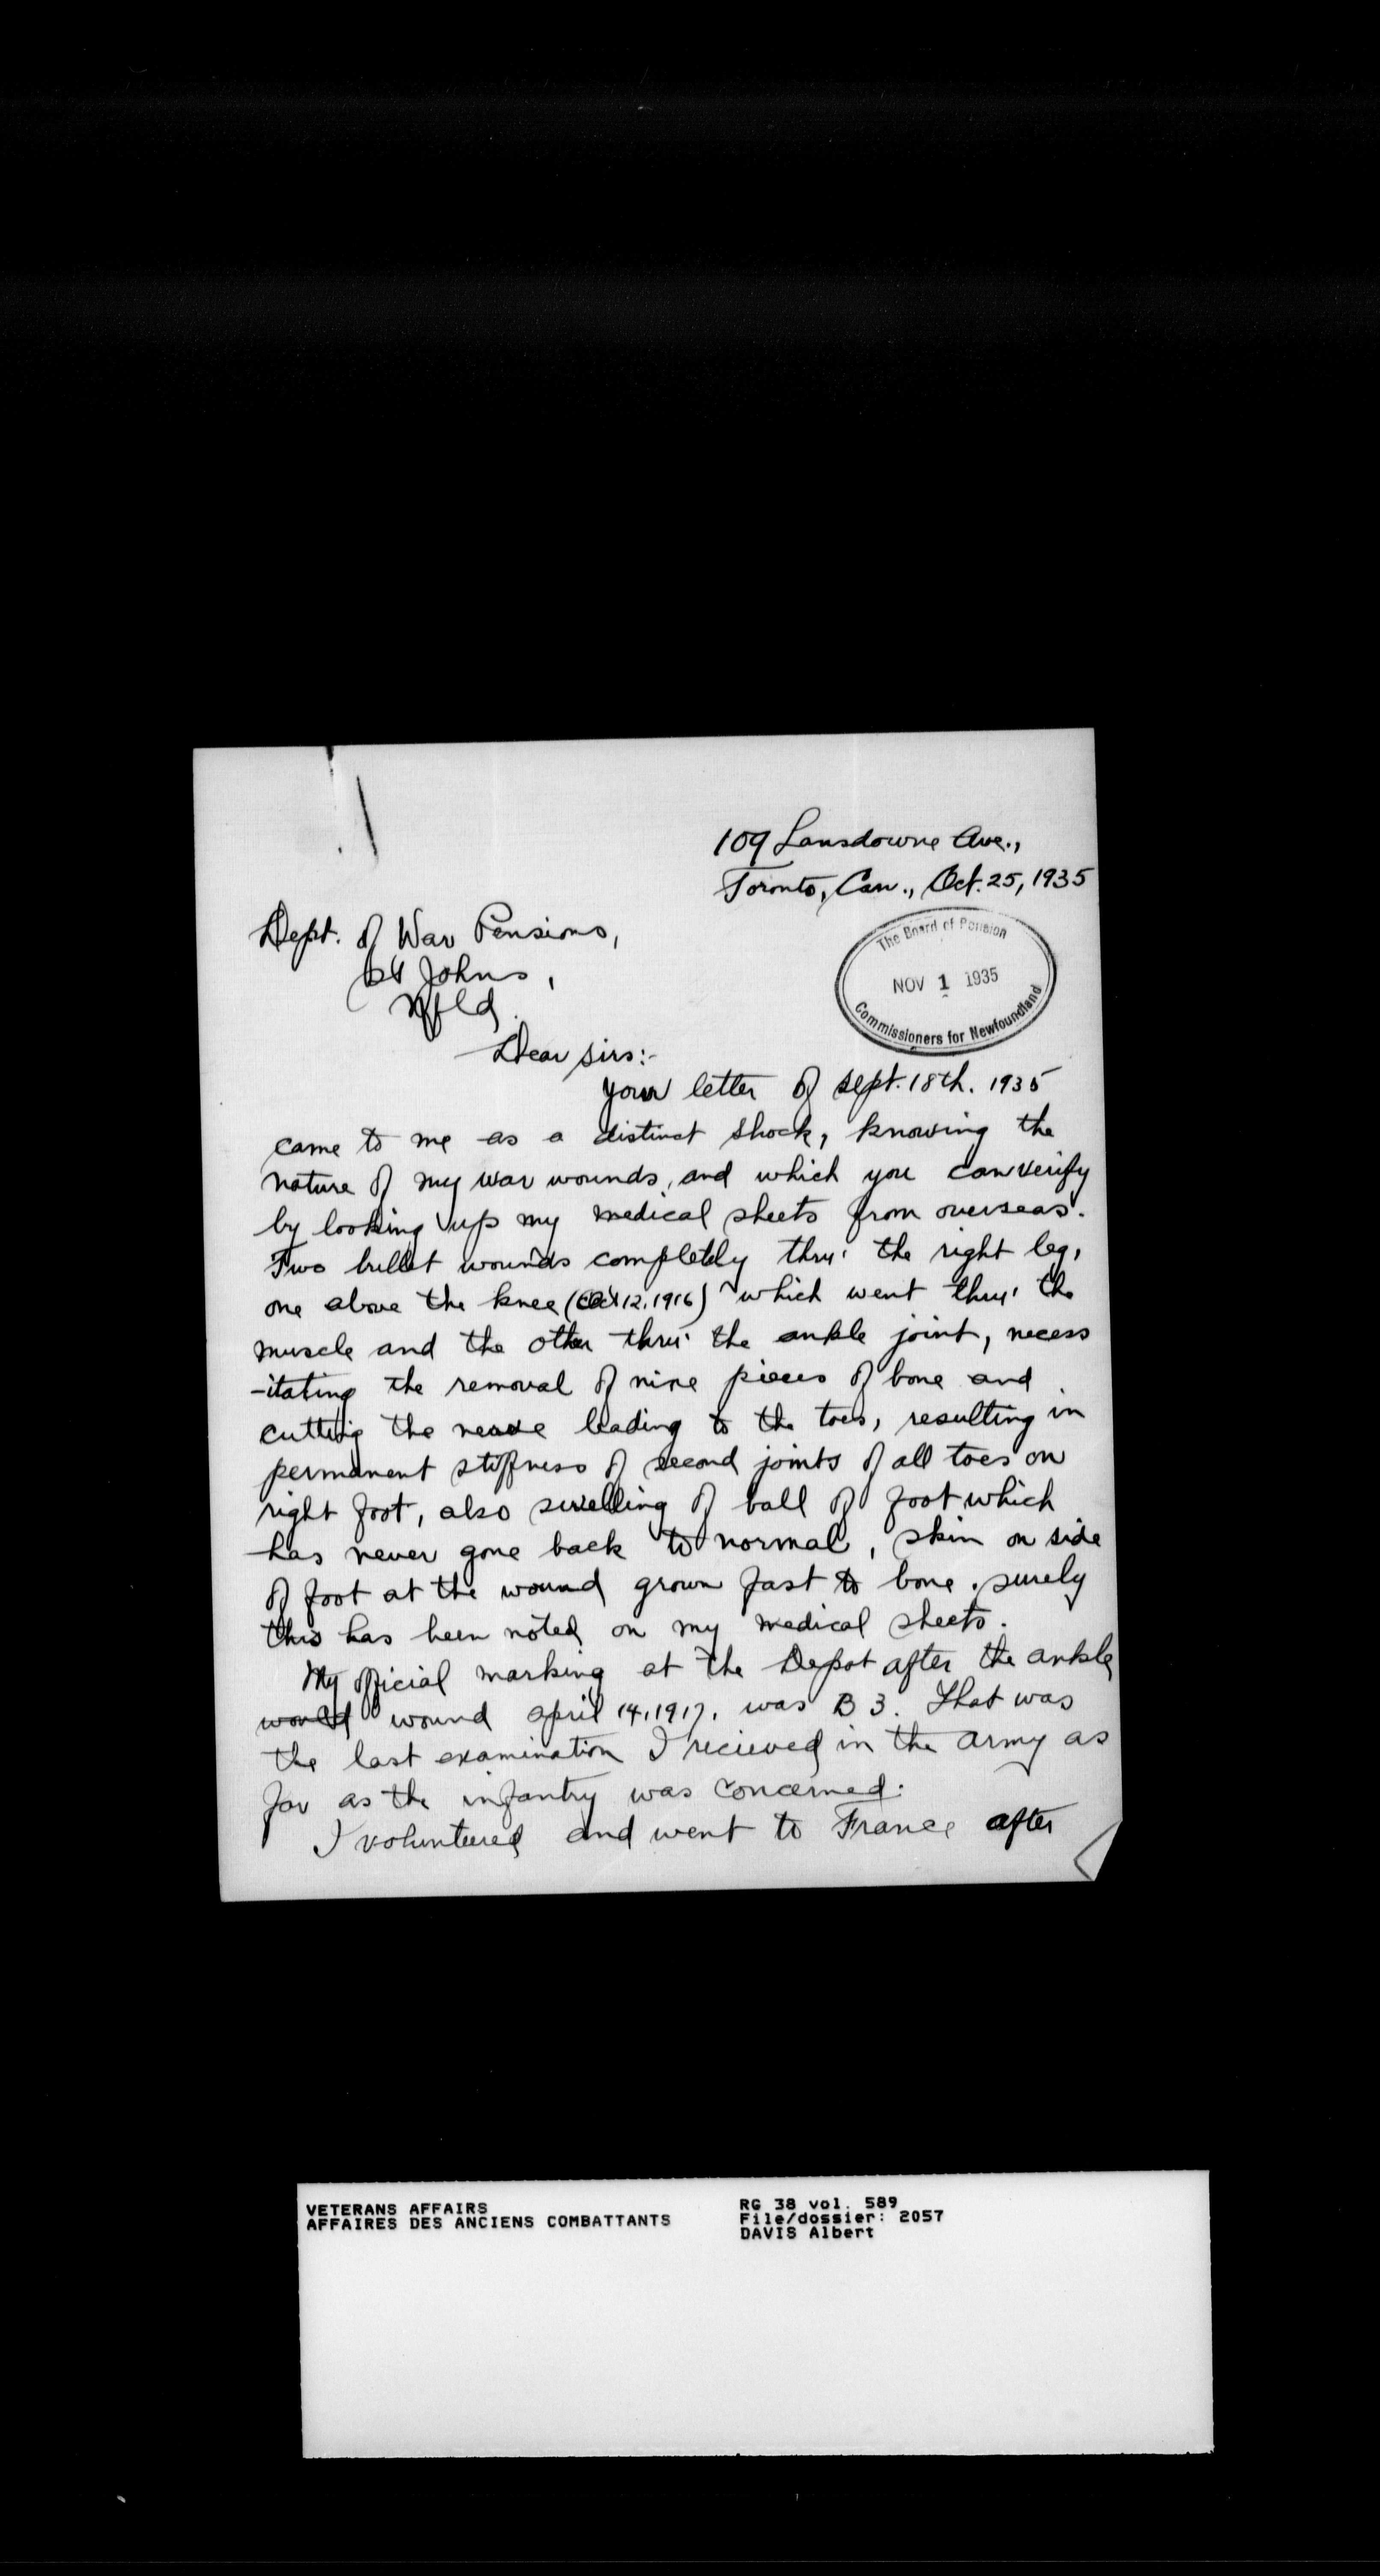 109 Lansdowne Ave.,
Toronto, Can., Oct. 25, 1935
Dept. of War Pensions,
St Johns,
Nfld.
The Board of Pension
NOV 1 1935
Commissioners for Newfoundland
Dear sirs:-
your letter of sept. 18th. 1935
came to me as a distinct shock, knowing the
nature of my war wounds, and which you can verify
by looking up my medical sheets from overseas.
Two bullet wounds completly thru' the right leg,
one above the knee (Oct 12, 1916) which went thru' the
muscle and the other thru' the ankle joint, necess
-itating the removal of nine pieces of bone and
cutting the nerve leading to the toes, resulting in
permanent stiffness of second joints of all toes on
right foot, also swelling of ball of foot which
has never gone back to normal, skin on side
of foot at the wound grown fast to bone. surely
this has been noted on my medical sheets.
My official marking at the Depot after the ankle
would wound april 14, 1917, was B 3. That was
the last examination I recieved in the army as
far as the infantry was concerned.
I volunteered and went to France after
VETERANS AFFAIRS
AFFAIRES DES ANCIENS COMBATTANTS
RG 38 vol. 589
File/dossier: 2057
DAVIS Albert